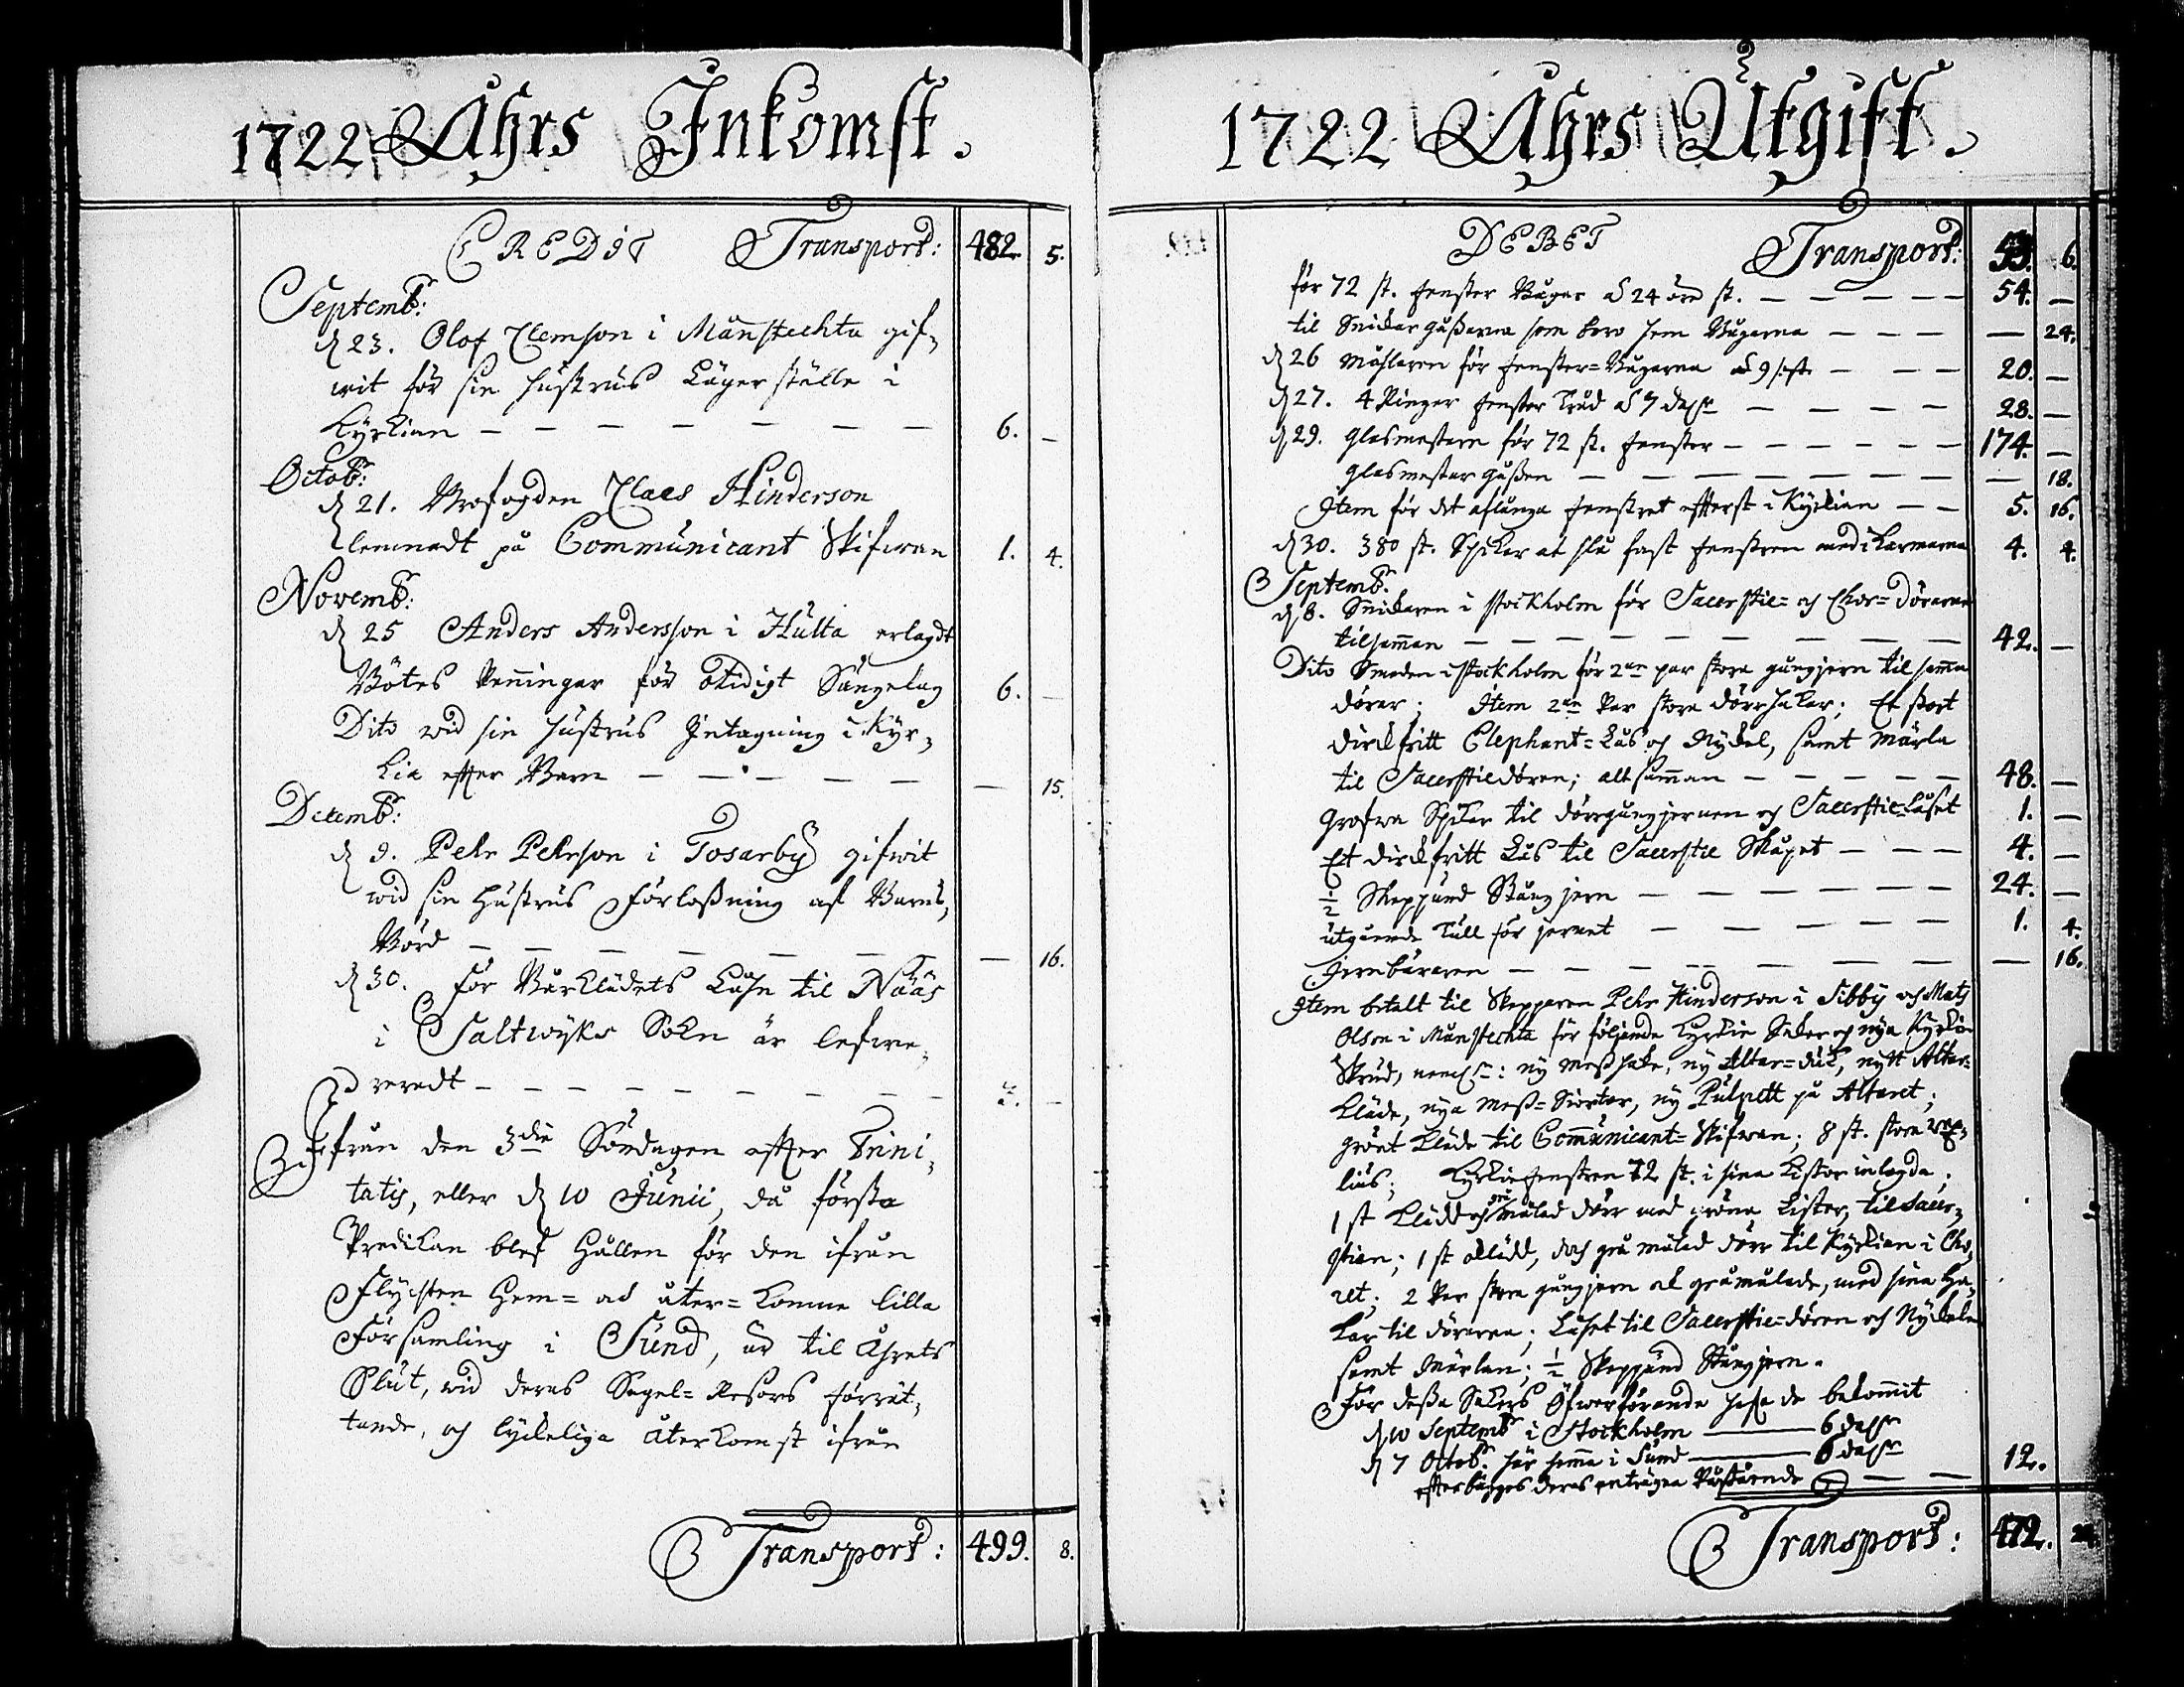 1722 Åhrs Inkomst.
CREDIT Transport: 482. 5.
Septembr:
d 23. Olof Clemson i Månstechta gif-
wit för sin hustrus Lägerställe i
Kyrkian — — — — — — — 6. —
Octobr:
d 21. Profogden Claes Hinderson
lemnadt på Communicant Skifwan 1. 4.
Novembr:
d 25 Anders Andersson i Hulta erlagdt
Bötes Penningar för otidigt Sängelag 6. —
Dito wid sin hustrus Intagning i Kyr-
kia efter Barn — — — — — — 15.
Decembr:
d 9. Pehr Pehrson i Tosarby gifwit
wid sin hustrus Förlossning af Barns-
Börd — — — — — — — 16.
d 30. För Bårklädets Låhn til Näås
i Saltwyks Sokn är lefwe-
reradt — — — — — — — 2. —
Ifrån den 3die Söndagen efter Trini-
tatis, eller d 10 Junii, då första
Predikan blef hållen för den ifrån
Flychten Hem= ad åter= komne lilla
Församling i Sund, är til Åhrets
Slut, wid deras Segel= Resors förrät-
tande, och lyckeliga återkomst ifrån
Transport: 499. 8.
1722 Åhrs Utgift.
DEBET Transport: 53. 6.
för 72 st. Fenster Bågar a 24 öre st. — — — — — 54. —
til Snickar gåssarna som boro hem Bågarna — — — — 24.
d 26 Måhlaren för Fenster=Bågarna a 9 st — — — 20. —
d 27. 4 Ringar Fenster Tråd a 7 dahlr — — — — — 28. —
d 29. Glasmestaren för 72 st. Fenster — — — — — 174. —
Glasmestar gåssen — — — — — — — — 18.
Item för det aflånga Fenstret efterst i Kyrkian — — 5. 16.
d 30. 380 st. Spikar at slå fast Fenstren med i karmarna 4. 4.
Septembr:
d 8. Snickaren i Stockholm för Sacerstie= och Chor= Dörarna
tilsamman — — — — — — — — 42. —
Dito Smeden i Stockholm för 2ne par stora gångjern til samma
dörar; Item 2ne Par stora dörrhakar; Et stort
dirckfritt Elephant= Lås och Nyckel, samt Märla
til Sacerstiedören; alt samman — — — — — 48. —
Grofwa Spikar til dörrgångjernen och Sacerstie-Låset 1. —
Et dirckfritt Lås til Sacerstie Skåpet — — — 4. —
1/2 Skeppund Stång jern — — — — — — 24. —
utgående Tull för jernet — — — — — 1. 4.
Jernbäraren — — — — — — — — 16.
Item betalt til Skepparen Pehr Hinderson i Sibby och Mats
Olson i Månstechta för följande Kyrkie Saker och nya Kyrkio
Skrud, nemln: ny Messhake, ny Altar= duk, nytt Altar=
kläde, nya Mess= Skiortor, ny Pulpett på Altaret;
grönt kläde til Communicant= Skifwan; 8 st. stora wax-
lius; Kyrkiefenstren 72 st. i sina Kistor inlagda;
1 st klädd och grå målad dörr med gröna Lister, til Sacer-
stien; 1 st oklädd, doch grå målad dörr til Kyrkian i Cho-
ret; 2 Par stora gångjern ock gråmålade, med sina Ha-
kar til dörarna; Låset til Sacerstie=dören och Nyckelen
samt Märlan; 1/2 Skeppund Stångjern.
För dessa Sakers Öfwerförande hafa de bekommit
d 10 Septembr i Stockholm — 6 dahlr
d 7 Octobr. här hemma i Sund — 6 dahlr
deras enträgna Påstående — — 12.
Transport: 472. 24.